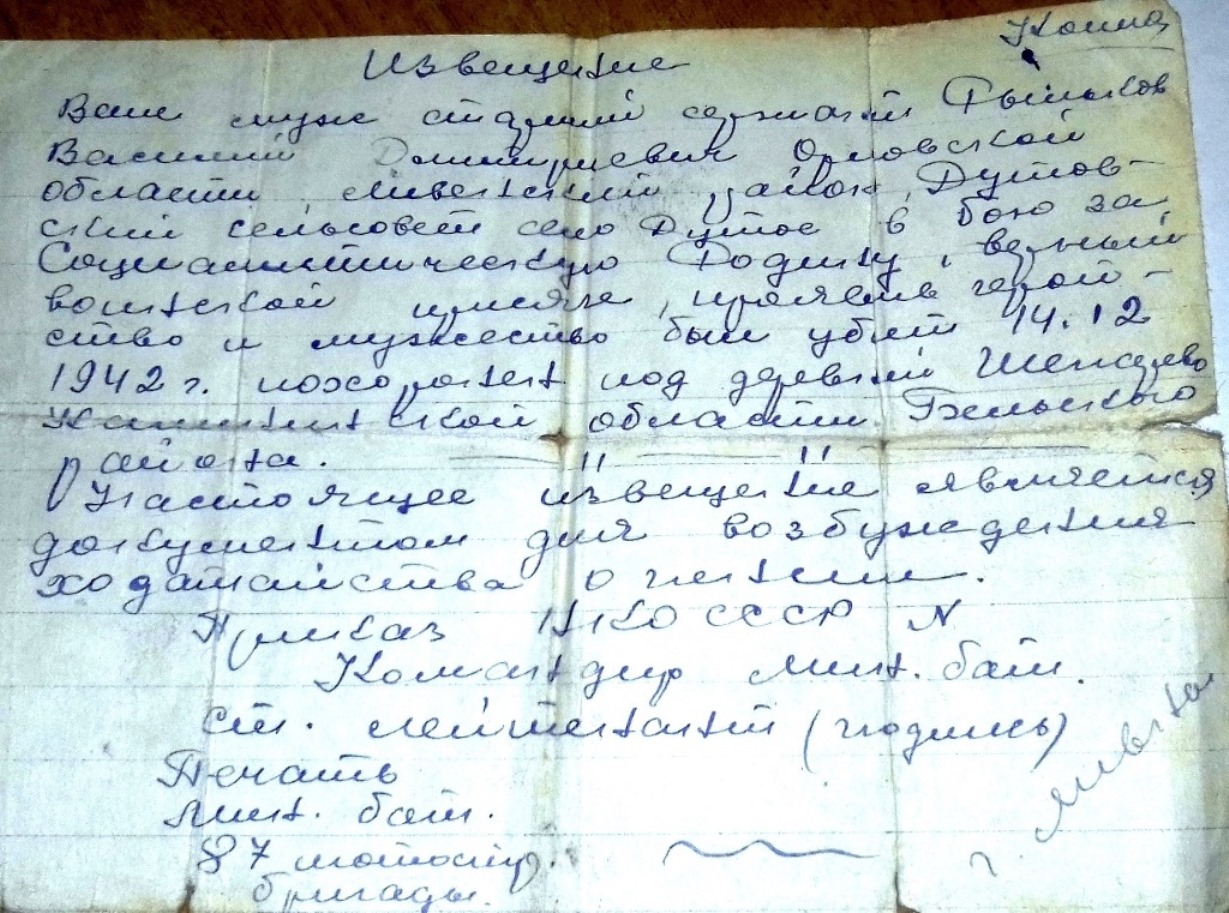 Копия
Извещение
Ваш муж старший сержант Рыльков
Василий Дмитриевич Орловской
области, Ливенский район, Дутов-
ский сельсовет село Дутое в бою за
Социалистическую Родину, верный
воинской присяге, проявив герой-
ство и мужество был убит 14.12
1942 г. похоронен под деревней
Калининской области Бельского
района.
Настоящее извещение является
документом для возбуждения
ходатайства о пенсии.
Приказ НКО СССР N
Командир мин. бат.
ст. лейтенант (подпись)
Печать
мин. бат.
87 мотостр.
бригады.
г. Ливны